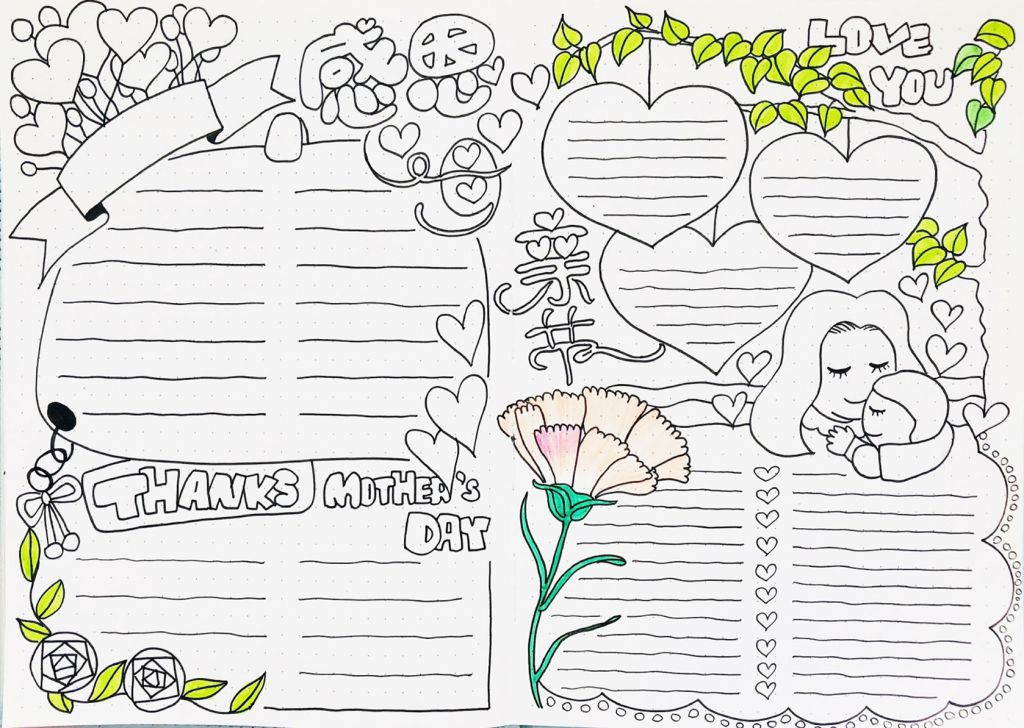 感恩
母
亲
节
THANKS
MOTHER'S
DAY
LOVE
YOU